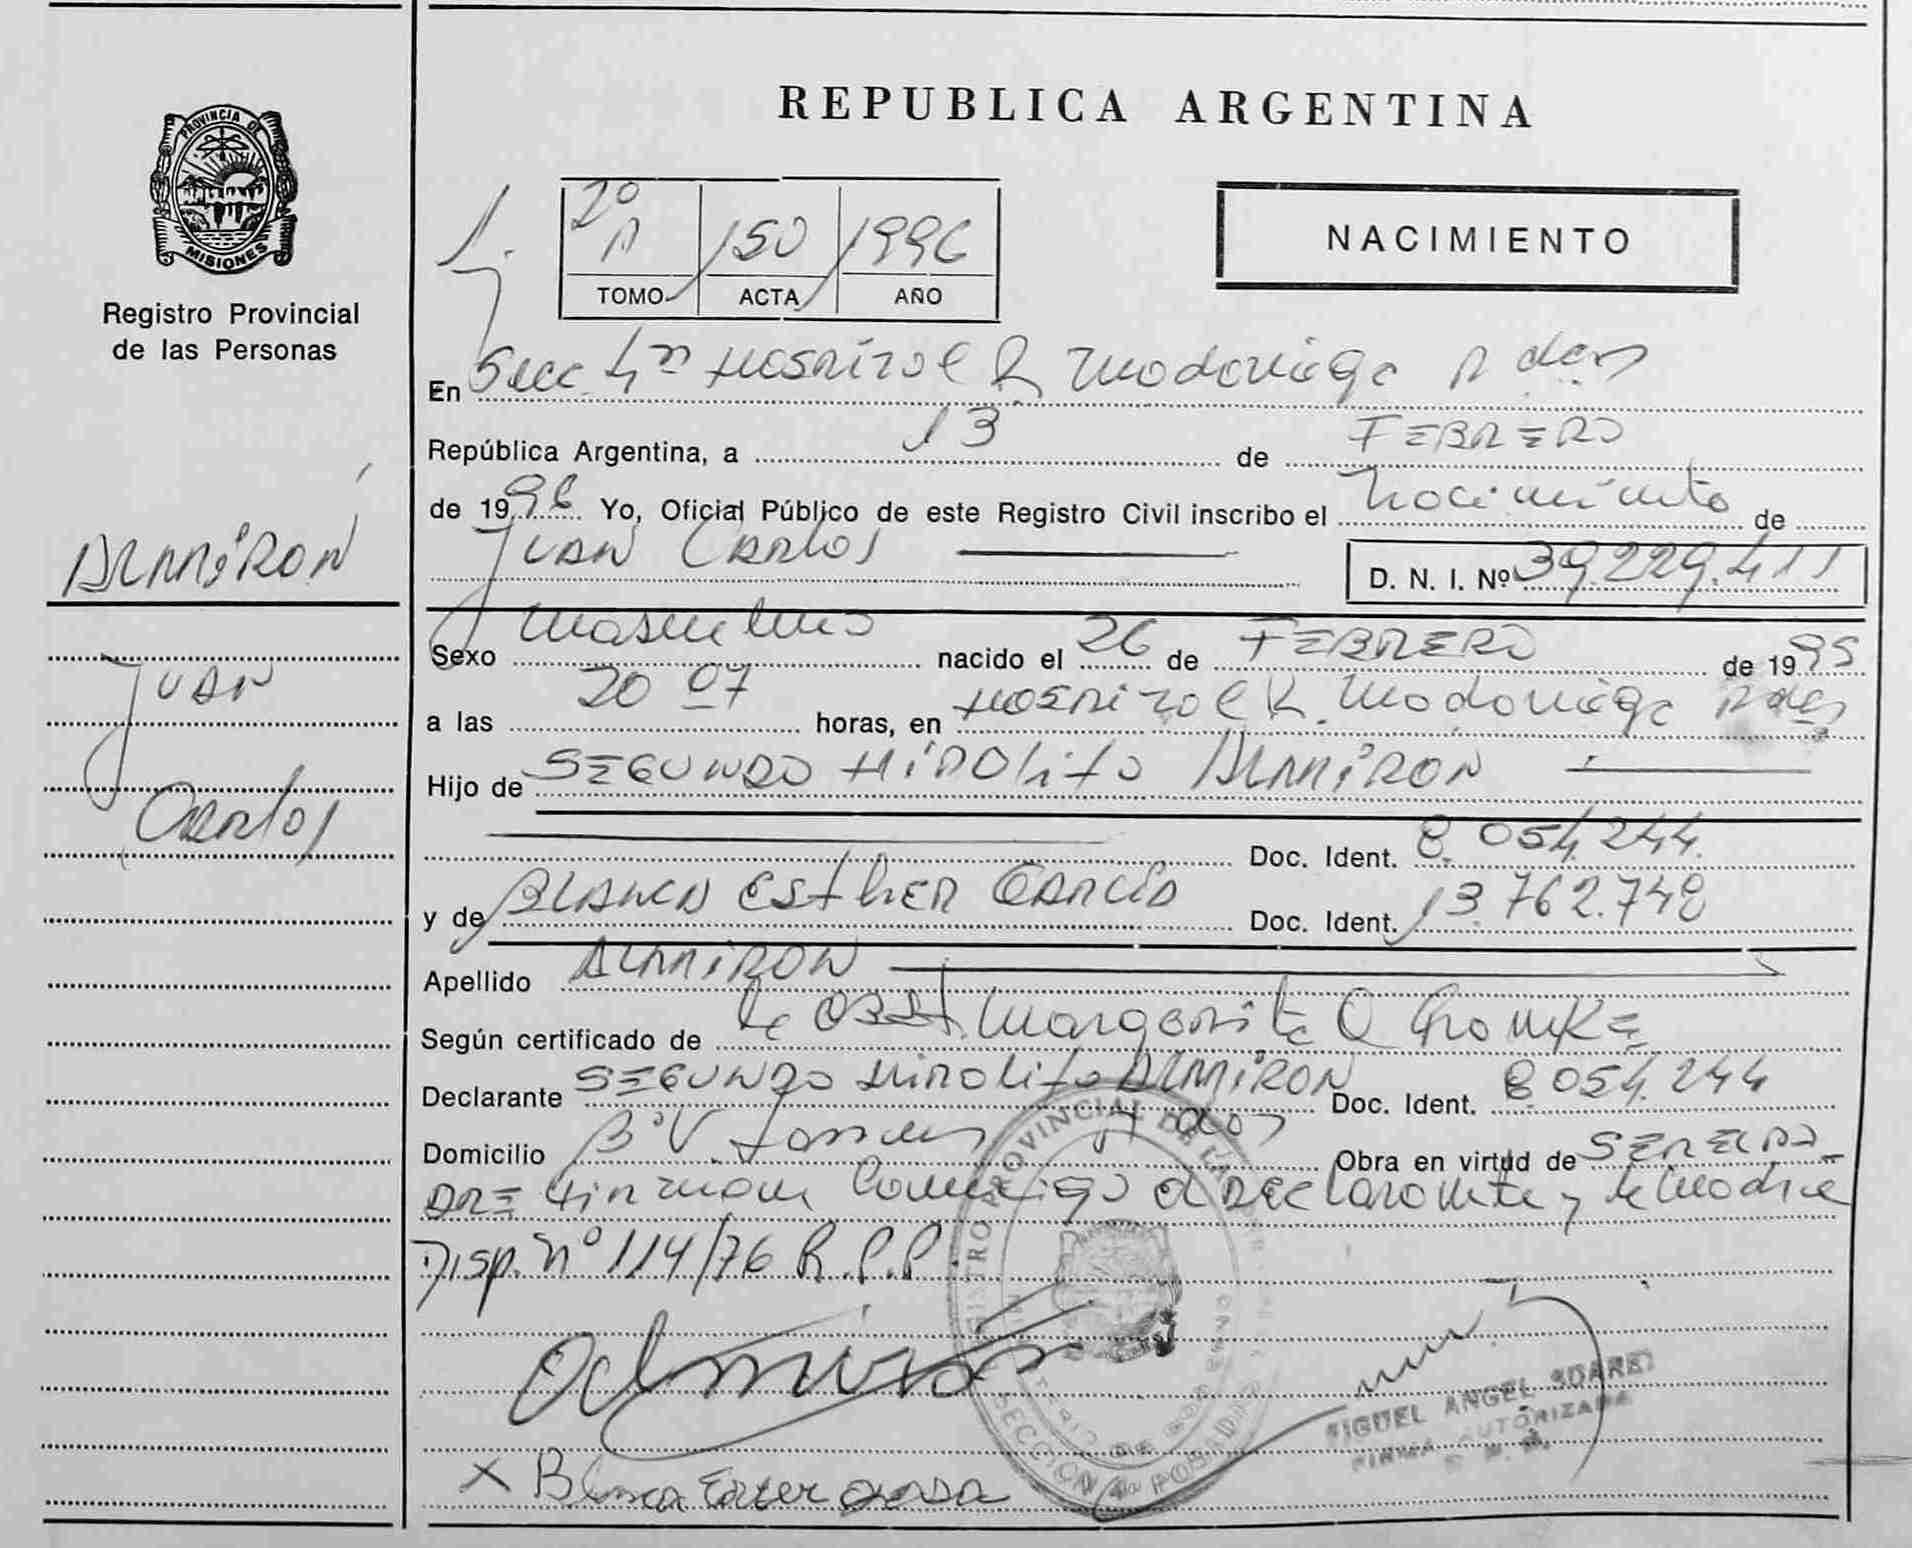 PROVINCIA DE
MISIONES
Registro Provincial
de las Personas
ALMIRON
JUAN
Carlos
REPUBLICA ARGENTINA
2º
A 150 1996
TOMO ACTA AÑO
NACIMIENTO
En Secc 4ª Hospital R. Madariaga Pdas
República Argentina, a 13 de FEBRERO
de 1996 Yo, Oficial Público de este Registro Civil inscribo el Nacimiento de
JUAN CARlos D. N. I. Nº 39.229.411
Sexo Masculino nacido el 26 de FEBRERO de 1995
a las 20 07 horas, en Hospital R. Madariaga Pdas
Hijo de SEGUNDO HIPOLITO ALMIRON
Doc. Ident. 8.054.244.
y de BLANCA ESTHER GARCIA Doc. Ident. 13.762.748
Apellido ALMIRON
Según certificado de la OBST. Margarita
Declarante SEGUNDO HIPOLITO ALMIRON Doc. Ident. 8.054.244
Domicilio Bº V. Pdas Obra en virtud de SER EL PA-
DRE firman conmigo el DEClarante y la Madre
Disp. nº 114/76 R.P.P.
REGISTRO PROVINCIAL DE LAS
SECCION 4ª POSADAS
MIGUEL ANGEL SUAREZ
FIRMA AUTORIZADA
X Blanca Ester